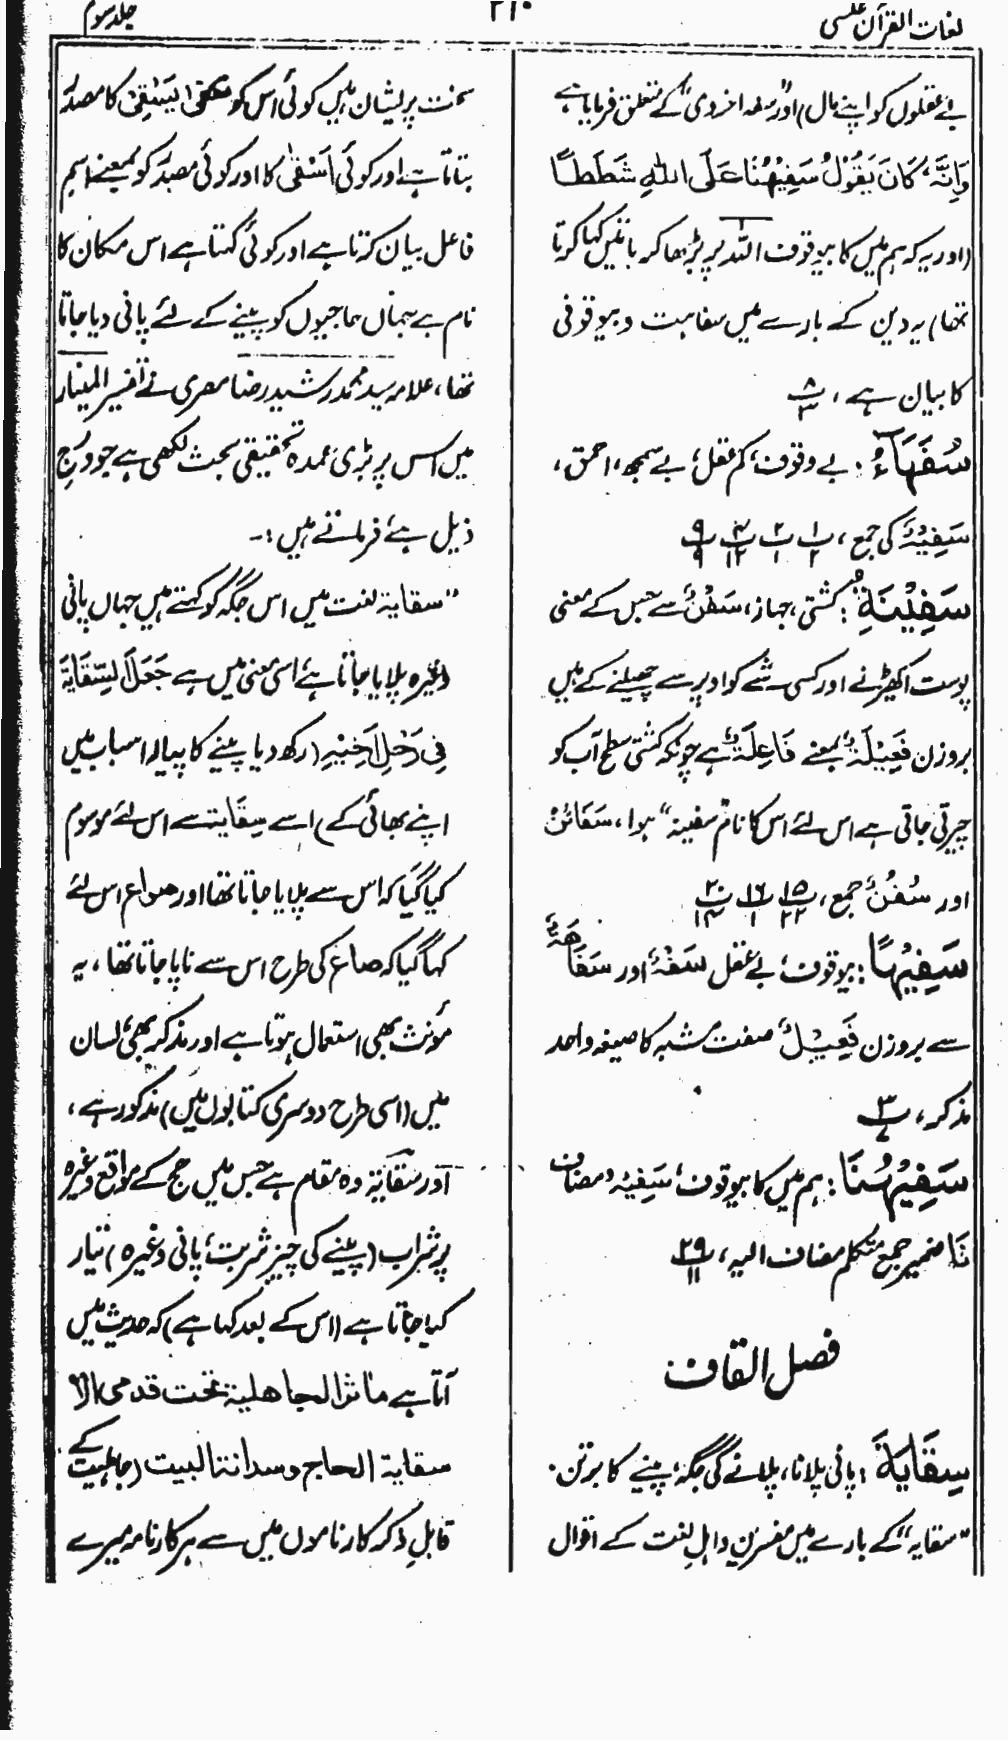 لغات القرآن
۲۱۰
جلد سوم
بے عقلوں کو اپنے مال) اور سفہ اخروی کے متعلق فرمایا ہے
وَاِنَّہٗ کَانَ یَقُوْلُ سَفِیْھُنَا عَلَی اللّٰہِ شَطَطًا
(اور یہ کہ ہم میں کا بیوقوف اللہ پر بڑھا کر باتیں کہا کرتا
تھا) یہ دین کے بارے میں سفاہت و بیوقوفی
کا بیان ہے،
سُفَھَآءُ: بے وقوف، کم عقل، بے سمجھ، احمق،
سَفِیْہٌ کی جمع،
سَفِیْنَۃِ: کشتی، جہاز، سَفْنٌ سے جس کے معنی
پوست اکھیڑنے اور کسی شے کو اوپر سے چھیلنے کے ہیں
بروزن فَعِیْلَۃٌ بمعنے فَاعِلَۃٌ ہے چونکہ کشتی سطح آب کو
چیرتی جاتی ہے اس لئے اس کا نام "سفینہ" ہوا، سَفَائِنُ
اور سُفُنٌ جمع،
سَفِیْہًا: بیوقوف، بے عقل سَفَہٌ اور سَفَاھَۃٌ
سے بروزن فَعِیْلٌ صفت مشبہ کا صیغہ واحد
مذکر،
سَفِیْہُنَا: ہم میں کا بیوقوف، سَفِیْہُ مضاف
نَا ضمیر جمع متکلم مضاف الیہ،
فصل القاف
سِقَایَۃَ: پانی پلانا، پلانے کی جگہ، پینے کا برتن۔
"سقایہ" کے بارے میں مفسرین و اہل لغت کے اقوال
سخت پریشان ہیں کوئی اس کو سَقٰی یَسْقِیْ کا مصدر
بتاتا ہے اور کوئی اَسْقٰی کا اور کوئی مصدر کو بمعنے اسم
فاعل بیان کرتا ہے اور کوئی کہتا ہے اس مکان کا
نام ہے جہاں حاجیوں کو پینے کے لئے پانی دیا جاتا
تھا، علامہ سید محمد رشید رضا مصری نے تفسیر المنار
میں اس پر بڑی عمدہ تحقیقی بحث لکھی ہے جو درج
ذیل ہے فرماتے ہیں:۔
"سقایۃ لغت میں اس جگہ کو کہتے ہیں جہاں پانی
وغیرہ پلایا جاتا ہے اسی معنی میں ہے جَعَلَ السِّقَایَۃَ
فِیْ رَحْلِ اَخِیْہِ (رکھ دیا پینے کا پیالہ اسباب میں
اپنے بھائی کے) اسے سِقَایۃ سے اس لئے موسوم
کیا گیا کہ اس سے پلایا جاتا تھا اور صواع اس لئے
کہا گیا کہ صاع کی طرح اس سے ناپا جاتا تھا، یہ
مؤنث بھی استعمال ہوتا ہے اور مذکر بھی، لسان
میں (اسی طرح دوسری کتابوں میں) مذکور ہے،
اور سقایۃ وہ مقام ہے جس میں حج کے مواقع وغیرہ
پر شراب (پینے کی چیز شربت، پانی وغیرہ) تیار
کیا جاتا ہے (اس کے بعد کہا ہے) کہ حدیث میں
آتا ہے ماثر الجاھلیۃ تحت قدمی الا
سقایۃ الحاج وسدانۃ البیت (جاہلیت کے
قابلِ ذکر کارناموں میں سے ہر کارنامہ میرے